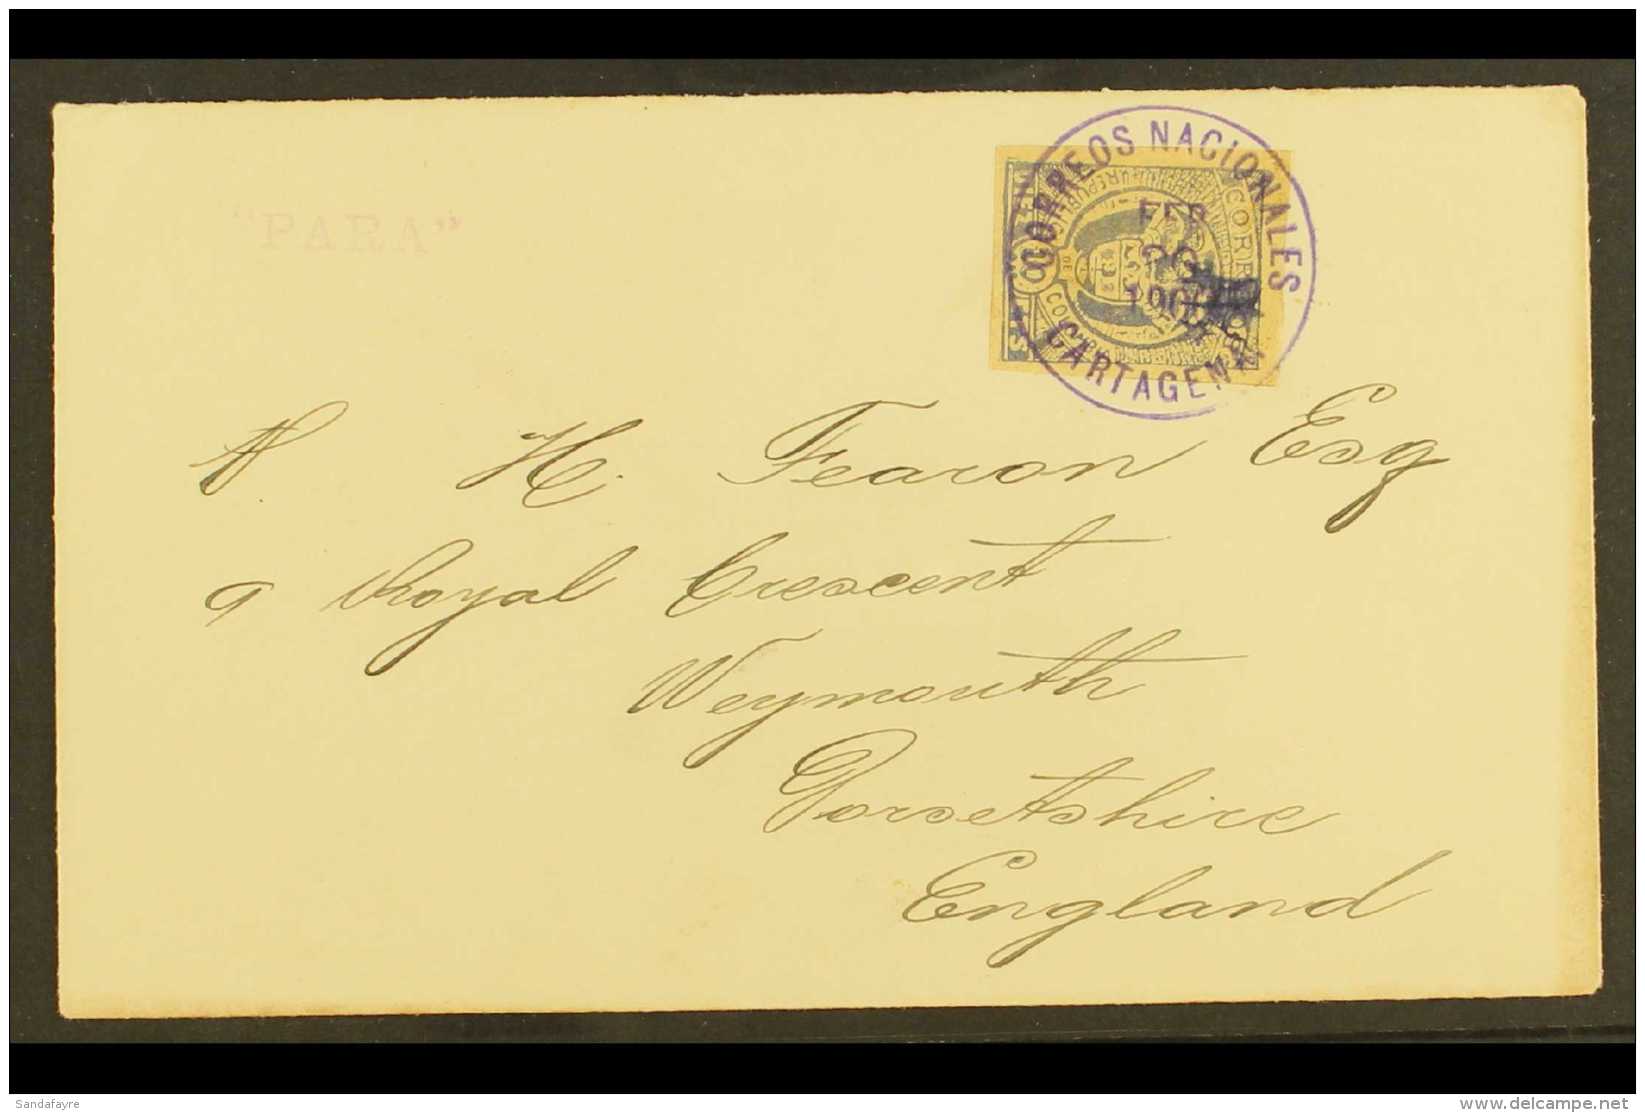 "PARA"
CORREOS NACIONALES
FEB
CARTAGENA
H. Fearon Esq
9 Royal Crescent
Weymouth
Dorsetshire
England
Sandafayre
www.delcampe.net